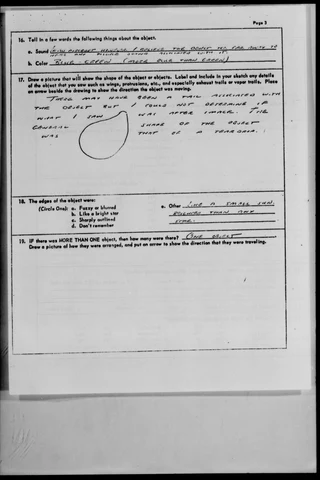 Page 2
16. Tell in a few words the following things about the object.
a. Sound
b. Color BLUE GREEN (MORE BLUE THAN GREEN)
17. Draw a picture that will show the shape of the object or objects. Label and include in your sketch any details
of the object that you saw such as wings, protrusions, etc., and especially exhaust trails or vapor trails. Place
an arrow beside the drawing to show the direction the object was moving.
THERE MAY HAVE BEEN A TAIL ASSOCIATED WITH
THE OBJECT BUT I COULD NOT DETERMINE IF
WHAT I SAW WAS AFTER IMAGE. THE
GENERAL SHAPE OF THE OBJECT
WAS THAT OF A TEARDROP.
18. The edges of the object were:
(Circle One): a. Fuzzy or blurred
b. Like a bright star
c. Sharply outlined
d. Don't remember
e. Other LIKE A SMALL SUN,
THAN ANY
STAR.
19. IF there was MORE THAN ONE object, then how many were there? ONE OBJECT
Draw a picture of how they were arranged, and put an arrow to show the direction that they were traveling.